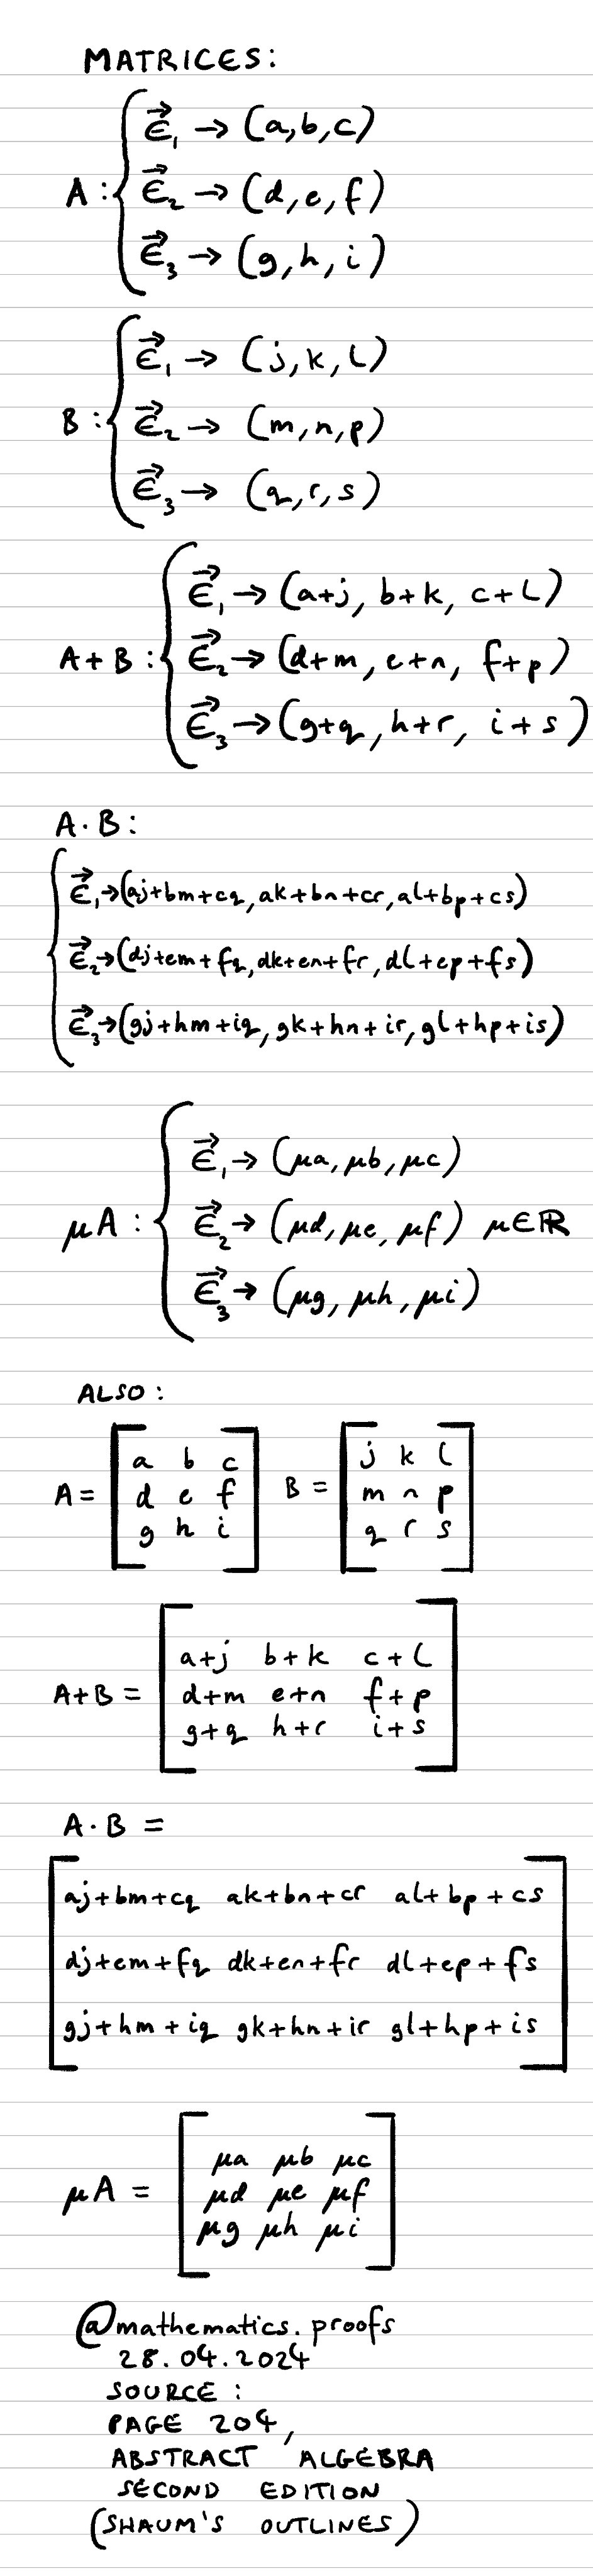 MATRICES:
A: { ϵ⃗₁ → (a,b,c)
ϵ⃗₂ → (d,e,f)
ϵ⃗₃ → (g,h,i)
B: { ϵ⃗₁ → (j,k,l)
ϵ⃗₂ → (m,n,p)
ϵ⃗₃ → (q,r,s)
A+B: { ϵ⃗₁ → (a+j, b+k, c+l)
ϵ⃗₂ → (d+m, e+n, f+p)
ϵ⃗₃ → (g+q, h+r, i+s)
A·B:
{ ϵ⃗₁ → (aj+bm+cq, ak+bn+cr, al+bp+cs)
ϵ⃗₂ → (dj+em+fq, dk+en+fr, dl+ep+fs)
ϵ⃗₃ → (gj+hm+iq, gk+hn+ir, gl+hp+is)
μA: { ϵ⃗₁ → (μa, μb, μc)
ϵ⃗₂ → (μd, μe, μf) μ∈ℝ
ϵ⃗₃ → (μg, μh, μi)
ALSO:
A = [ a b c B = [ j k l
d e f m n p
g h i ] q r s ]
A+B = [ a+j b+k c+l
d+m e+n f+p
g+q h+r i+s ]
A·B =
[ aj+bm+cq ak+bn+cr al+bp+cs
dj+em+fq dk+en+fr dl+ep+fs
gj+hm+iq gk+hn+ir gl+hp+is ]
μA = [ μa μb μc
μd μe μf
μg μh μi ]
@mathematics.proofs
28.04.2024
SOURCE:
PAGE 204,
ABSTRACT ALGEBRA
SECOND EDITION
(SHAUM'S OUTLINES)